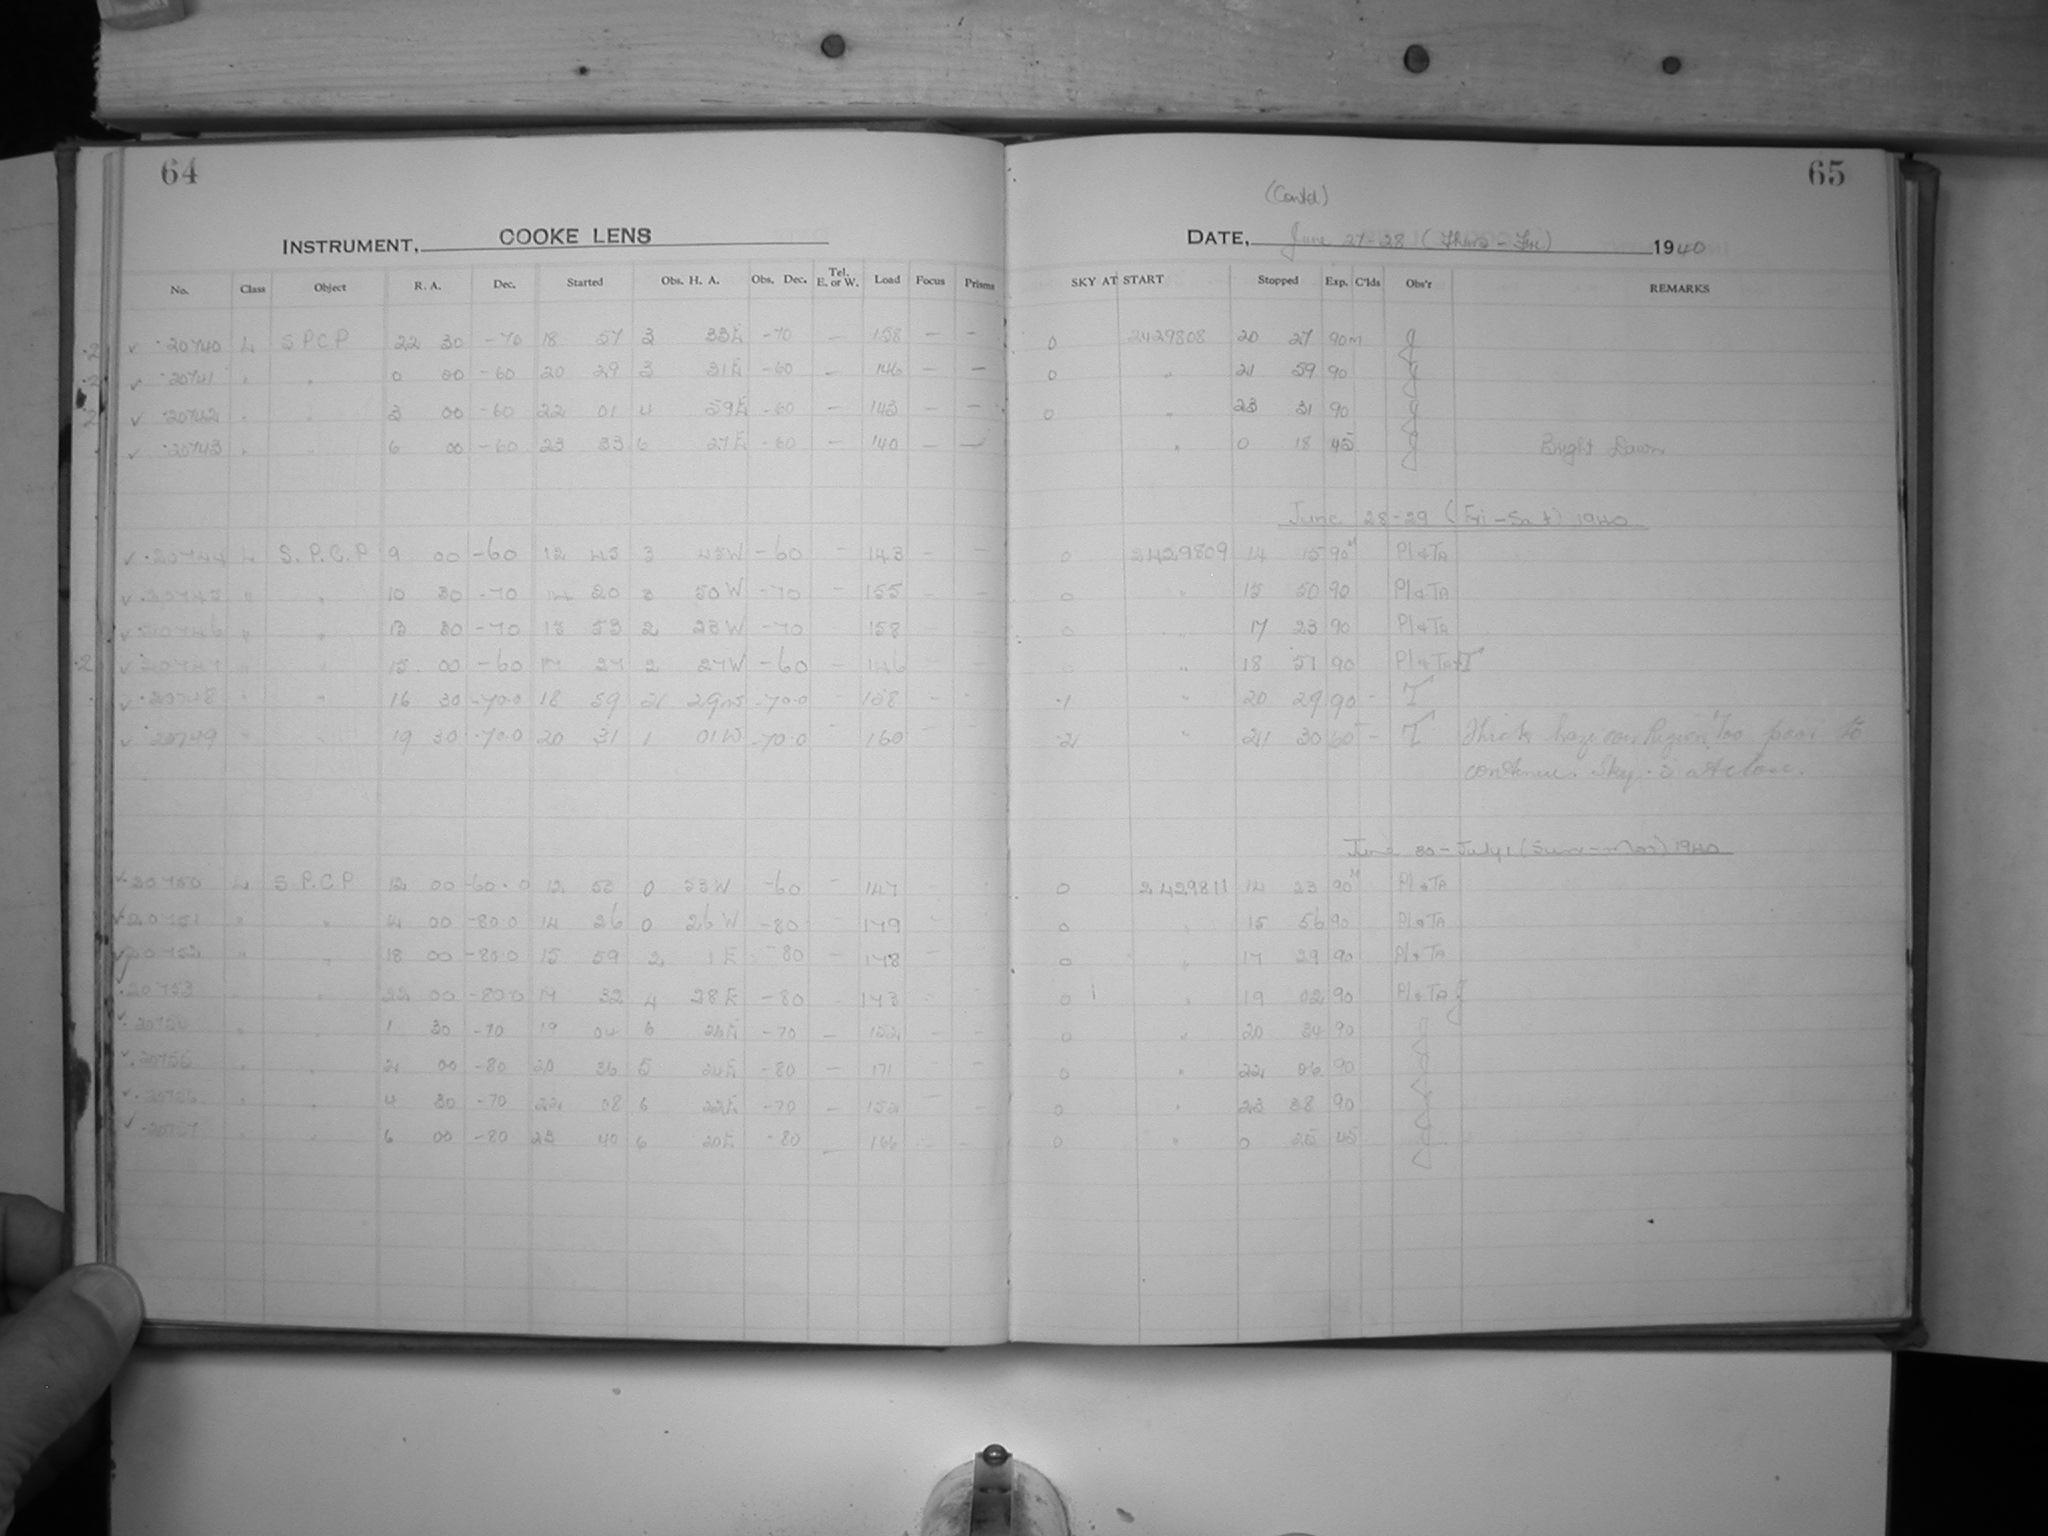 64
INSTRUMENT, COOKE LENS
No. Class Object R. A. Dec. Started Obs. H. A. Obs. Dec. Tel. E. or W. Load Focus Prisms
20740 L S.P.C.P 22 30 -70 18 57 3 33E -70 — 158 — —
20741 " " 0 00 -60 20 29 3 31E -60 — 146 — —
20742 " " 3 00 -60 22 01 4 59E -60 — 143 — —
20743 " " 6 00 -60 23 33 6 27E -60 — 140 — —
20744 L S.P.C.P 9 00 -60 12 45 3 45W -60 — 143 — —
20745 " " 10 30 -70 14 20 3 50W -70 — 155 — —
20746 " " 13 30 -70 15 53 2 23W -70 158 — —
" " 15 00 -60 17 2 27W -60 — 146
20748 " " 16 30 -70.0 18 59 29 -70.0 158 —
20749 " " 19 30 -70.0 20 31 1 01W -70.0 — 160 — —
20750 L S.P.C.P 12 00 -60.0 12 53 0 53W -60 — 147
20751 " " 14 00 -80.0 14 26 0 26W -80 179
20752 " " 18 00 -80.0 15 59 2 1E -80 — 178
20753 " " 22 00 -80.0 17 32 4 28E -80 — 173
" " 1 30 -70 19 04 6 26E -70 — 152 — —
" " 2 00 -80 20 36 5 24E -80 — 171 — —
" " 4 30 -70 22 08 6 22E -70 — 152 — —
20757 " " 6 00 -80 23 40 6 20E -80 — 166 — —
65
(Contd)
DATE, June 27-28 (Thurs - Fri) 1940
SKY AT START Stopped Exp. C'lds Obs'r REMARKS
0 2429808 20 27 90m J
0 " 21 59 90 J
0 " 23 31 90 J
" 0 18 45 J Bright Dawn
June 28-29 (Fri-Sat) 1940
0 2429809 14 15 90M Pl & TA
0 " 15 50 90 Pl & TA
0 " 17 23 90 Pl & TA
0 " 18 57 90 Pl & TA+T
.1 " 20 29 90 - T
.2 " 21 30 60 - T Thick haze over Region too poor to
continue. Sky at close.
June 30-July 1 (Sun-Mon) 1940
0 2429811 14 23 90M Pl & TA
0 " 15 56 90 Pl & TA
0 " 17 29 90 Pl & TA
0 " 19 02 90 Pl & TA J
0 " 20 34 90 J
0 " 22 06 90 J
0 " 23 38 90 J
0 " 0 25 45 J